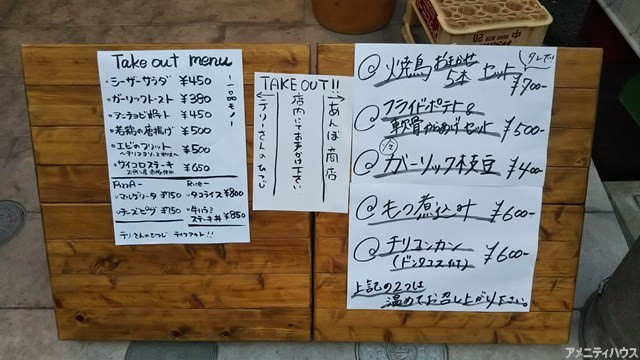 Take out menu
・シーザーサラダ ¥450
・ガーリックトースト ¥380
・アンチョビポテト ¥450
・若鶏の唐揚げ ¥500
・エビのフリット ¥500
・サイコロステーキ ¥650
一品モノ
Pizza
・マルゲリータ ¥750
・チーズピザ ¥750
Rice
・タコライス ¥800
・牛ハラミ
ステーキ丼 ¥850
テリーさんのひつじ テイクアウト!!
TAKE OUT!!
→あんぽ商店
店内にてお声がけ下さい
←テリーさんのひつじ
@焼鳥おまかせ
5本セット
¥700-
@フライドポテト&
軟骨からあげセット ¥500-
@ガーリック枝豆 ¥400-
@もつ煮込み ¥600-
@チリコンカン
(ドンタコス付) ¥600-
上記の2つは
温めてお召し上がり下さい。
アメニティハウス